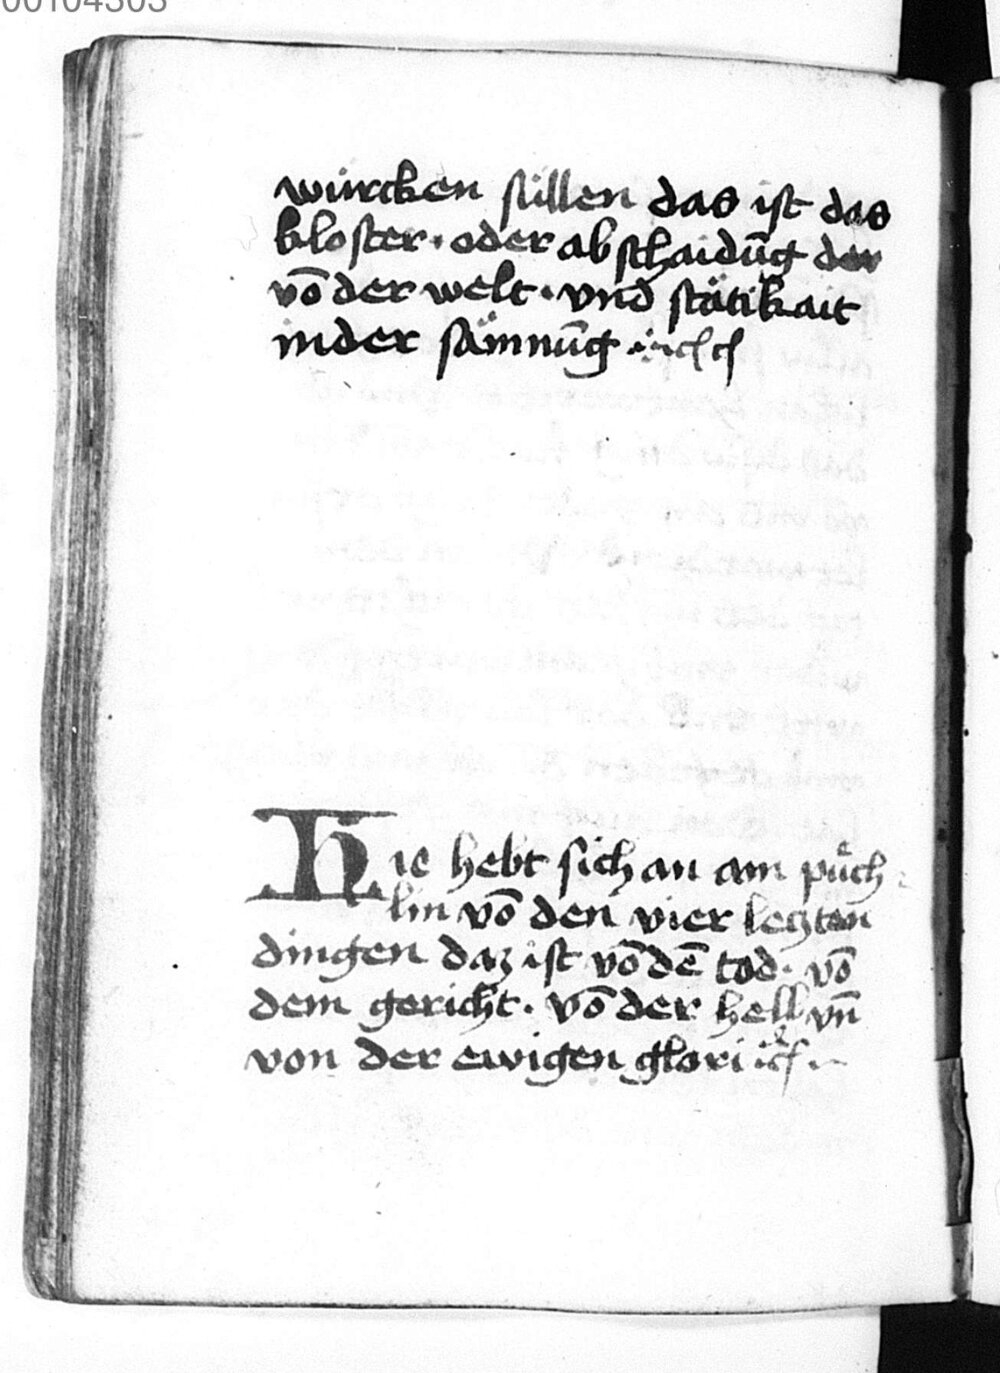 00104303
würcken süllen das ist das
kloster · oder abschaidūg der
vō der welt · vnd stätikait
in der sämnūg
Hie hebt sich an ain püch
lin vō den vier leczten
dingen daz ist vō dē tod · vō
dem gericht · vō der hell vn̄
von der ewigen glori